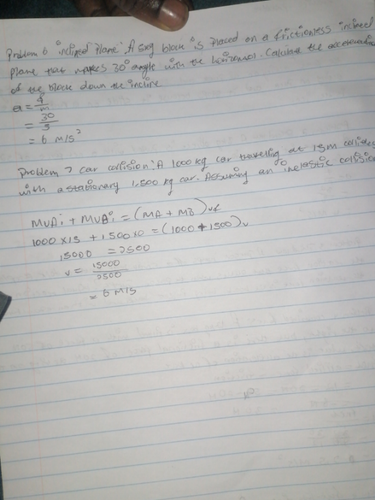 Problem 6 inclined Plane: A 5kg block is placed on a frictionless inclined
plane that makes 30° angle with the horizontal. Calculate the acceleration
of the block down the incline
a = F/m
= 30/5
= 6 m/s²
Problem 7 car collision: A 1000 kg car travelling at 15m collides
with a stationary 1,500 kg car. Assuming an inelastic collision
MVAi + MVBi = (MA + MB)vf
1000 x 15 + 1500 x 0 = (1000 + 1500)v
15000 = 2500
v = 15000/2500
= 6 m/s